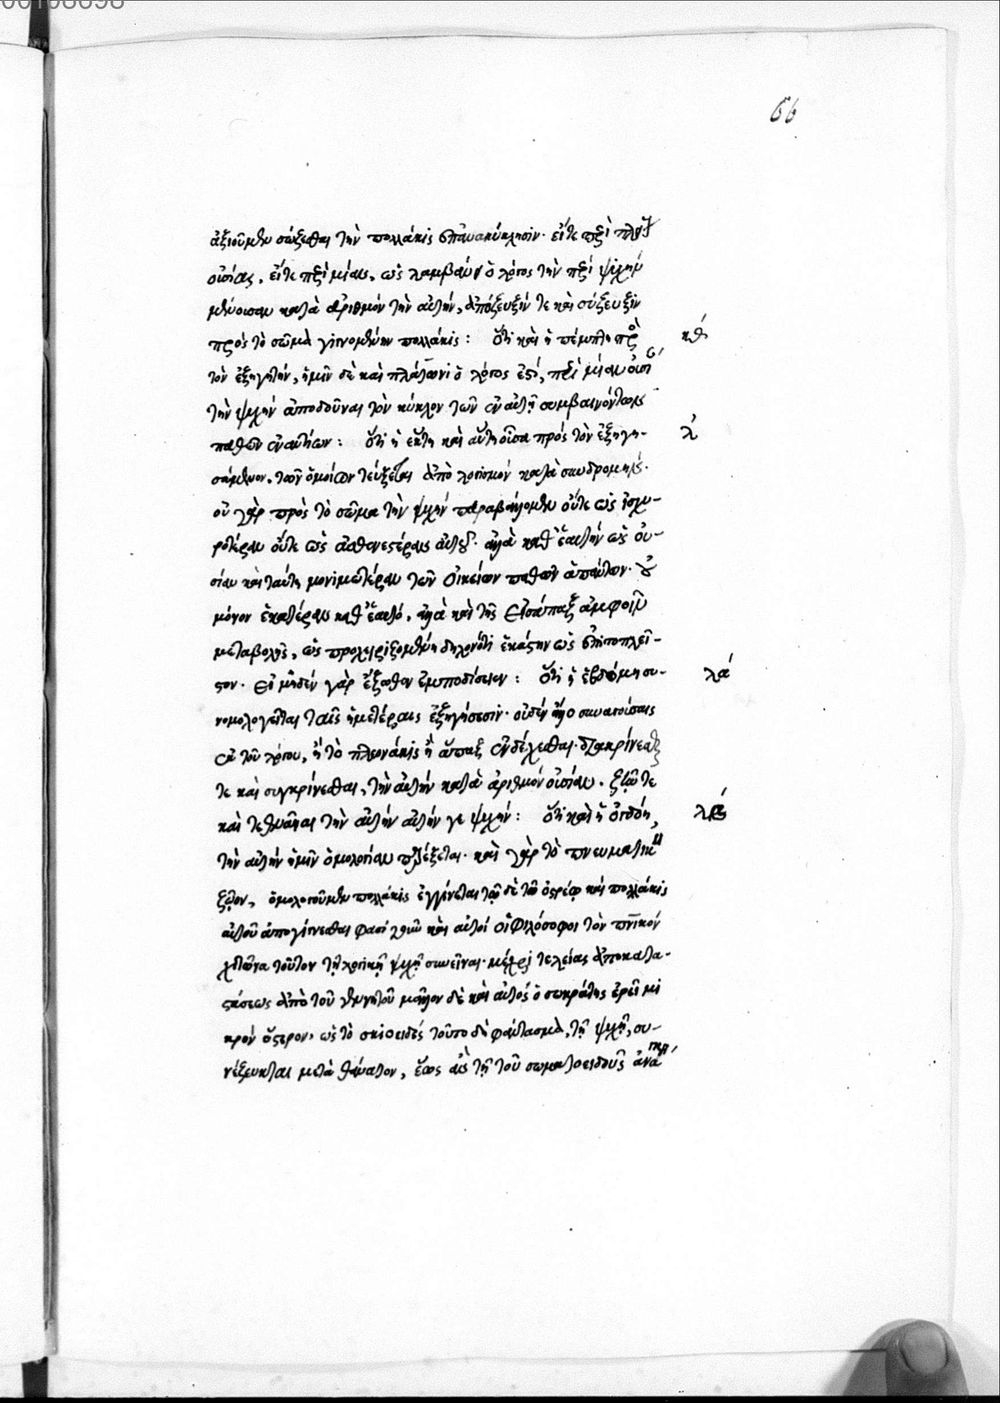 66
ἀξιοῦμεν σώζεσθαι τὴν πολλάκις ἐπανακύκλησιν· εἴτε περὶ
οὐσίας, εἴτε περὶ μίαν, ὡς λαμβάνει ὁ λόγος τὴν περὶ ψυχὴν
μένουσαν κατὰ ἀριθμὸν τὴν αὐτὴν, ἀπόζευξίν τε καὶ σύζευξιν
πρὸς τὸ σῶμα γινομένην πολλάκις : ὅτι καὶ ἡ πέμπτη πρὸς
κθ
τὸν ἐξηγητὴν, ἡμῖν δὲ καὶ πλάτωνι ὁ λόγος ἐστὶ, περὶ μίαν οὐσίαν
τὴν ψυχὴν ἀποδοῦναι τὸν κύκλον τῶν ἐν αὐτῇ συμβαινόντων
παθῶν ἐναντίων : ὅτι ἡ ἕκτη καὶ αὕτη οὖσα πρὸς τὸν ἐξηγη-
λ
σάμενον, τῶν ὁμοίων τεύξεται ἀπὸ λογισμὸν κατὰ συνδρομὴν·
οὐ γὰρ πρὸς τὸ σῶμα τὴν ψυχὴν παραβάλλομεν οὔτε ὡς ἰσχυ-
ροτέραν οὔτε ὡς ἀσθενεστέραν αὐτοῦ· ἀλλὰ καθ' ἑαυτὴν ὡς οὐ-
σίαν καὶ ταύτῃ μονιμωτέραν τῶν οἰκείων παθῶν ἁπάντων· οὐ
μόνον ἑκατέραν καθ' ἑαυτό, ἀλλὰ καὶ τῆς εἰσάπαξ ἀμφοῖν
μεταβολῆς, ὡς προχειριζομένη δηλονότι ἑκάστην ὡς ἐπιτοπλεῖ-
στον· εἰ μηδὲν γὰρ ἔξωθεν ἐμποδίσειεν : ὅτι ἡ ἑβδόμη συ-
λα
νομολογεῖται ταῖς ἡμετέραις ἐξηγήσεσιν· οὐδὲν ἄλλο συναγούσαις
ἐκ τοῦ λόγου, ἢ τὸ πλεονάκις ἢ ἅπαξ ἐνδέχεσθαι· διακρίνεσθαι
τε καὶ συγκρίνεσθαι, τὴν αὐτὴν κατὰ ἀριθμὸν οὐσίαν, ζῶσαν τε
καὶ τεθνᾶναι τὴν αὐτὴν αὐτήν γε ψυχὴν : ὅτι καὶ ἡ ὀγδόη,
λβ
τὴν αὐτὴν ἡμῖν ὁμολογίαν παρέξεται· καὶ γὰρ τὸ πνευματικὸν
ζῷον, ὁμολογοῦμεν πολλάκις ἐγγίνεται τῷ δὲ τῷ ὀστρέῳ καὶ πολλάκις
αὐτοῦ ἀπογίνεσθαι φασὶ γοῦν καὶ αὐτοὶ οἱ φιλόσοφοι τὸν πνικὸν
χιτῶνα τοῦτον τῇ λογικῇ ψυχῇ συνεῖναι· μέχρι τελείας ἀποκατα-
στάσεως ἀπὸ τοῦ θνητοῦ μᾶλλον δὲ καὶ αὐτὸς ὁ σωκράτης ἐρεῖ μι
κρὸν ὕστερον, ὡς τὸ σκιοειδὲς τοῦτο δὴ φάντασμα, τῇ ψυχῇ, συ-
νέζευκται μετὰ θάνατον, ἕως ἂν τῇ τοῦ σωματοειδοῦς